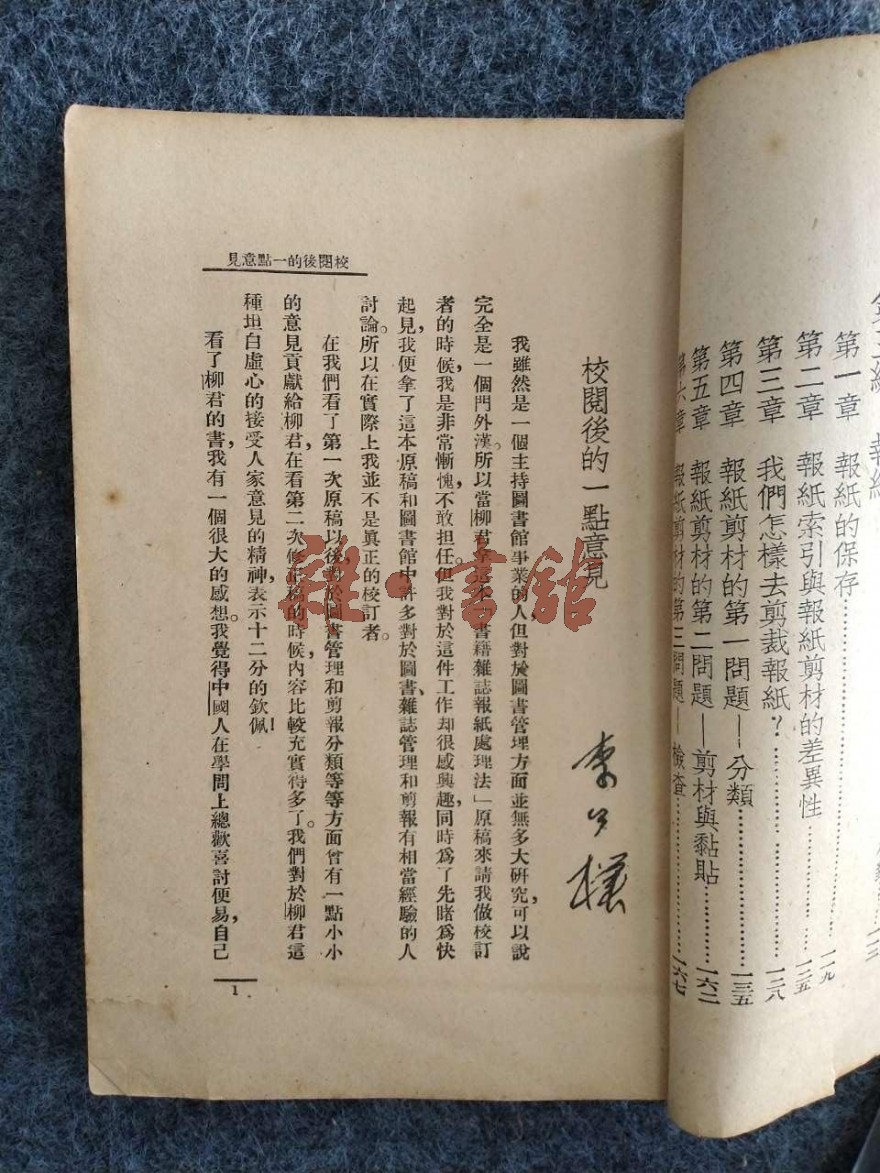 第一章 報紙的保存……一一九
第二章 報紙索引與報紙剪材的差異性……一二五
第三章 我們怎樣去剪裁報紙？……一二八
第四章 報紙剪材的第一問題——分類……一三五
第五章 報紙剪材的第二問題——剪材與黏貼……一六二
第六章 報紙剪材的第三問題——檢查……一六七
校閱後的一點意見
校閱後的一點意見
李公樸
我雖然是一個主持圖書館事業的人，但對於圖書管理方面並無多大研究，可以說
完全是一個門外漢。所以當柳君拿這本「書籍雜誌報紙處理法」原稿來請我做校訂
者的時候，我是非常慚愧，不敢担任。但我對於這件工作却很感興趣，同時為了先睹為快
起見，我便拿了這本原稿和圖書館中許多對於圖書、雜誌管理和剪報有相當經驗的人
討論。所以在實際上我並不是眞正的校訂者。
在我們看了第一次原稿以後，對於圖書管理和剪報分類等等方面曾有一點小小
的意見貢獻給柳君，在看第二次修正稿的時候，內容比較充實得多了。我們對於柳君這
種坦白虛心的接受人家意見的精神，表示十二分的欽佩！
看了柳君的書，我有一個很大的感想。我覺得中國人在學問上總歡喜討便易，自己
1
雜·書館